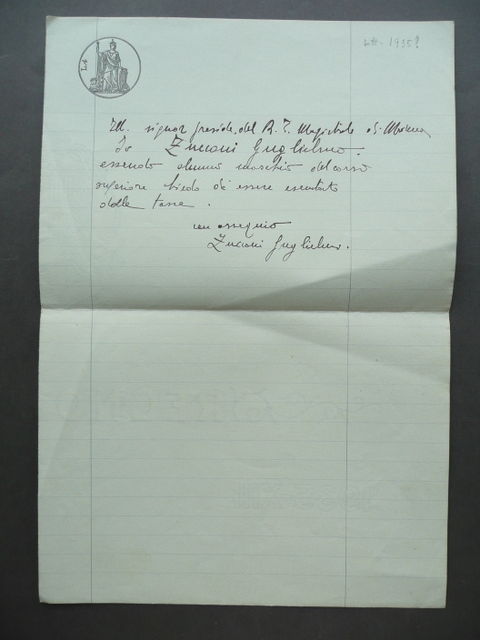 L.4
L4 - 1935?
Ill. signor preside del R. I. Magistrale di Modena
Io Zucconi Guglielmo.
essendo alunno maschio del corso
superiore chiedo di essere esentato
dalle tasse.
con ossequio
Zucconi Guglielmo.